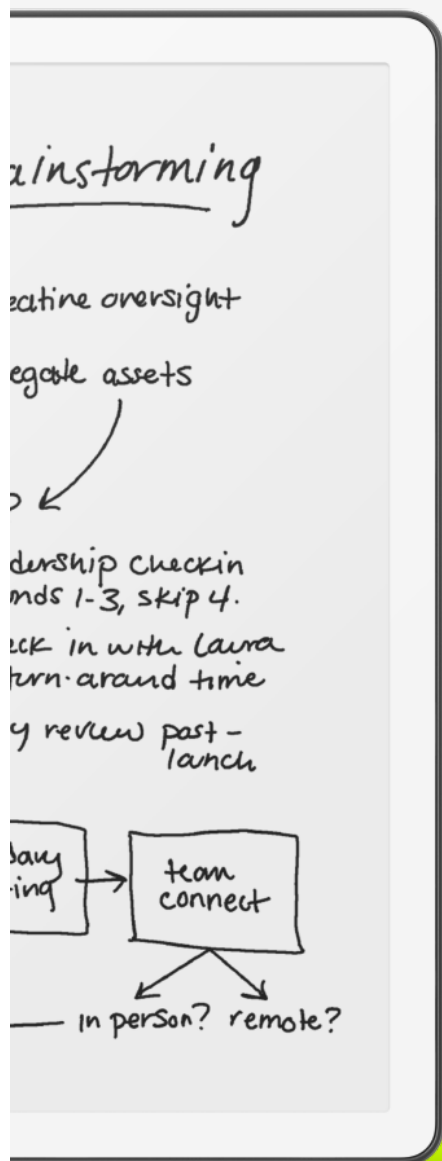 ainstorming
eative oversight
egate assets
dership checkin
nds 1-3, skip 4.
eck in with Laura
turn-around time
y review past-
launch
team
ing
connect
in person? remote?